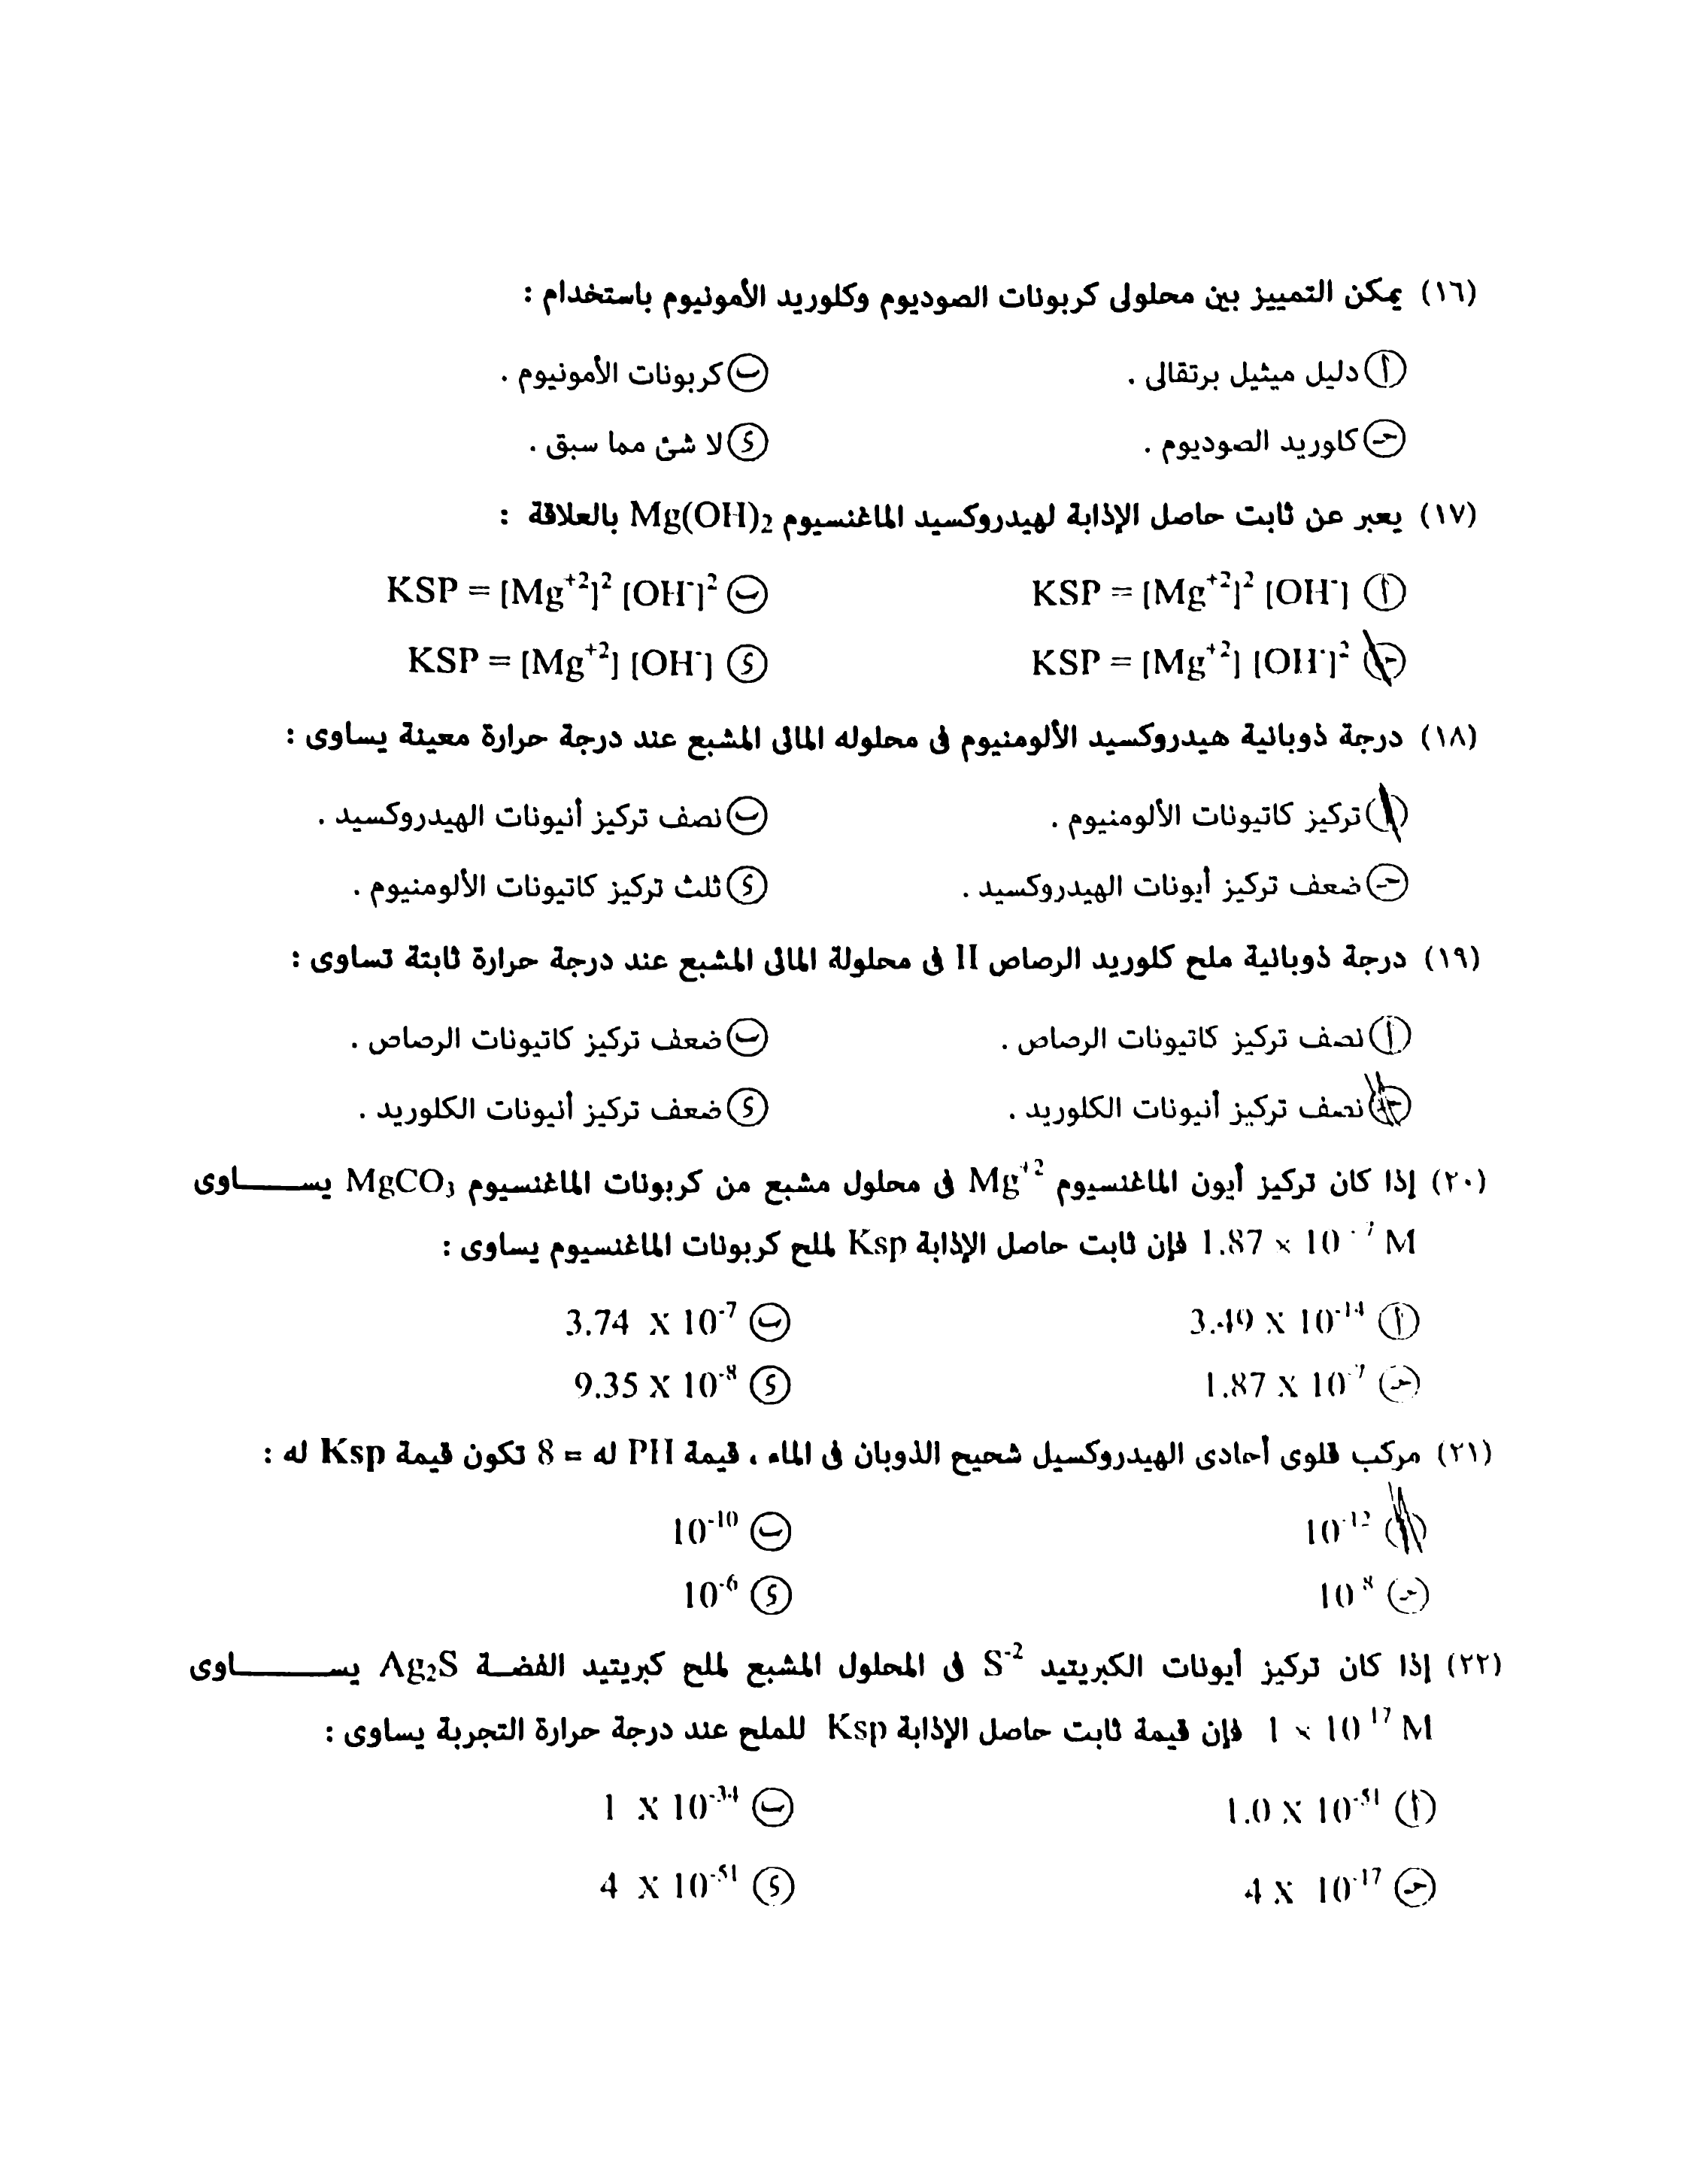 (١٦) يمكن التمييز بين محلولى كربونات الصوديوم وكلوريد الأمونيوم باستخدام :
أ دليل ميثيل برتقالى . ب كربونات الأمونيوم .
جـ كلوريد الصوديوم . د لا شئ مما سبق .
(١٧) يعبر عن ثابت حاصل الإذابة لهيدروكسيد الماغنسيوم Mg(OH)₂ بالعلاقة :
أ KSP = [Mg⁺²]² [OH⁻] ب KSP = [Mg⁺²]² [OH⁻]²
جـ KSP = [Mg⁺²] [OH⁻]² د KSP = [Mg⁺²] [OH⁻]
(١٨) درجة ذوبانية هيدروكسيد الألومنيوم فى محلوله المائى المشبع عند درجة حرارة معينة يساوى :
أ تركيز كاتيونات الألومنيوم . ب نصف تركيز أنيونات الهيدروكسيد .
جـ ضعف تركيز أيونات الهيدروكسيد . د ثلث تركيز كاتيونات الألومنيوم .
(١٩) درجة ذوبانية ملح كلوريد الرصاص II فى محلولة المائى المشبع عند درجة حرارة ثابتة تساوى :
أ نصف تركيز كاتيونات الرصاص . ب ضعف تركيز كاتيونات الرصاص .
جـ نصف تركيز أنيونات الكلوريد . د ضعف تركيز أنيونات الكلوريد .
(٢٠) إذا كان تركيز أيون الماغنسيوم Mg⁺² فى محلول مشبع من كربونات الماغنسيوم MgCO₃ يســـــاوى
1.87 × 10⁻⁷ M فإن ثابت حاصل الإذابة Ksp لملح كربونات الماغنسيوم يساوى :
أ 3.49 X 10⁻¹⁴ ب 3.74 X 10⁻⁷
جـ 1.87 X 10⁻⁷ د 9.35 X 10⁻⁸
(٢١) مركب قلوى أحادى الهيدروكسيل شحيح الذوبان فى الماء ، قيمة PH له = 8 تكون قيمة Ksp له :
أ 10⁻¹² ب 10⁻¹⁰
جـ 10⁸ د 10⁻⁶
(٢٢) إذا كان تركيز أيونات الكبريتيد S⁻² فى المحلول المشبع لملح كبريتيد الفضـة Ag₂S يســـــــاوى
1 × 10¹⁷ M فإن قيمة ثابت حاصل الإذابة Ksp للملح عند درجة حرارة التجربة يساوى :
أ 1.0 X 10⁻⁵¹ ب 1 X 10⁻³⁴
جـ 4 X 10⁻¹⁷ د 4 X 10⁻⁵¹